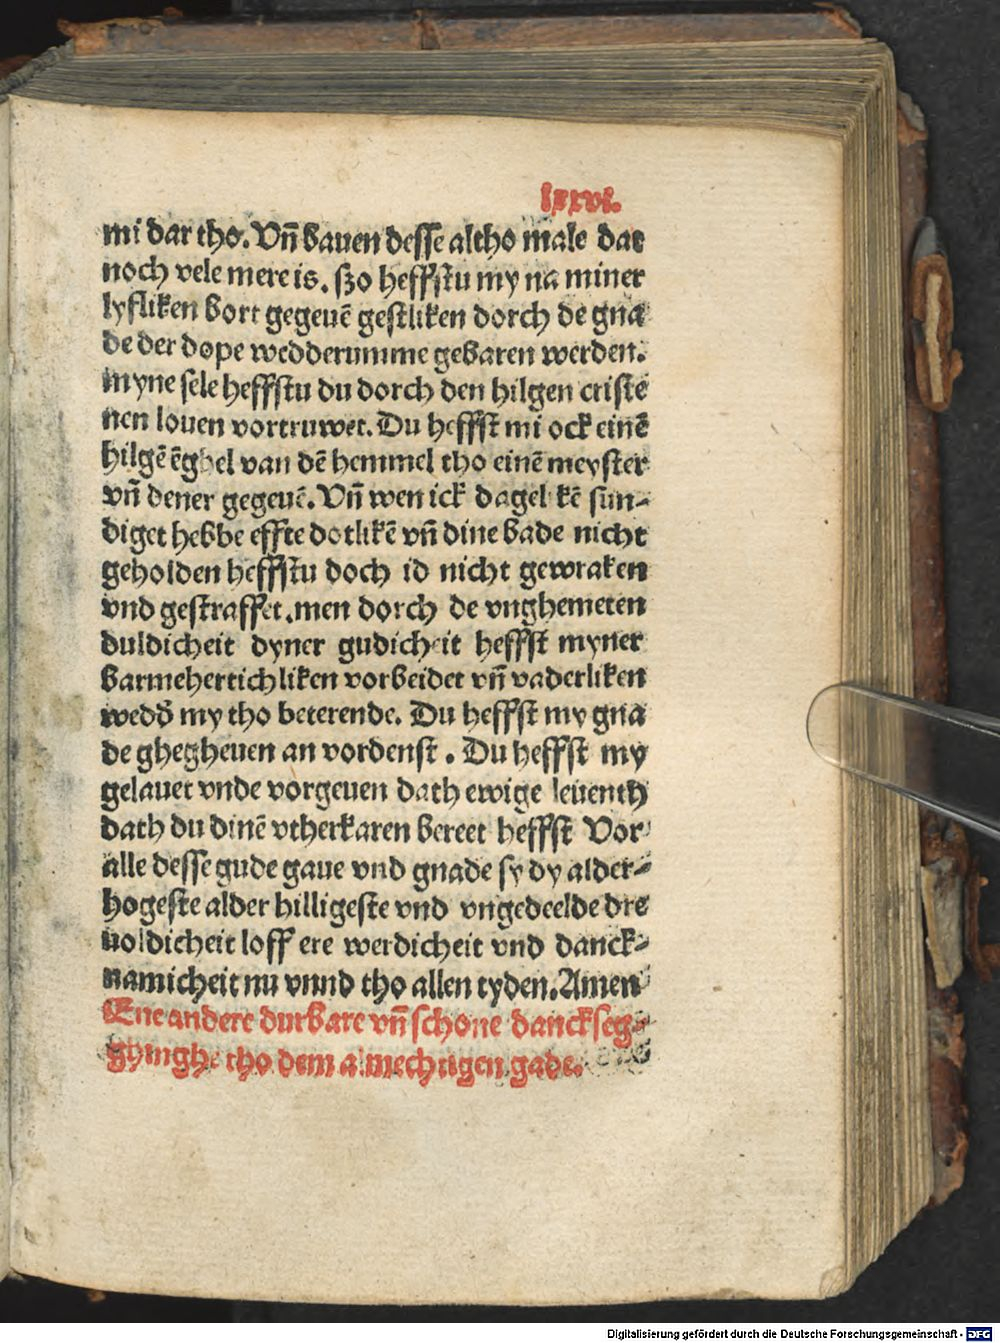 lxxvi.
mi dar tho. Vn̄ bauen desse altho male dat
noch vele mere is. szo heffstu my na miner
lyfliken bort gegeuē gestliken dorch de gna
de der dope wedderumme gebaren werden.
myne sele heffstu du dorch den hilgen cristē
nen louen vortruwet. Du heffst mi ock einē
hilgē ēghel van dē hemmel tho einē meyster
vn̄ dener gegeuē. Vn̄ wen ick dagelikē sun⸗
diget hebbe effte dotlikē vn̄ dine bade nicht
geholden heffstu doch id nicht gewraken
vnd gestraffet. men dorch de vnghemeten
duldicheit dyner gudicheit heffst myner
barmehertichliken vorbeidet vn̄ vaderliken
wedd̕ my tho beterende. Du heffst my gna
de ghegheuen an vordenst. Du heffst my
gelauet vnde vorgeuen dath ewige leuenth
dath du dinē vtherkaren bereet heffst Vor
alle desse gude gaue vnd gnade sy dy alder⸗
hogeste alder hilligeste vnd vngedeelde dre
uoldicheit loff ere werdicheit vnd danck⸗
namicheit nu vnnd tho allen tyden. Amen
Ene andere durbare vn̄ schone danckseg⸗
ghinghe tho dem almechtigen gade.
Digitalisierung gefördert durch die Deutsche Forschungsgemeinschaft - DFG